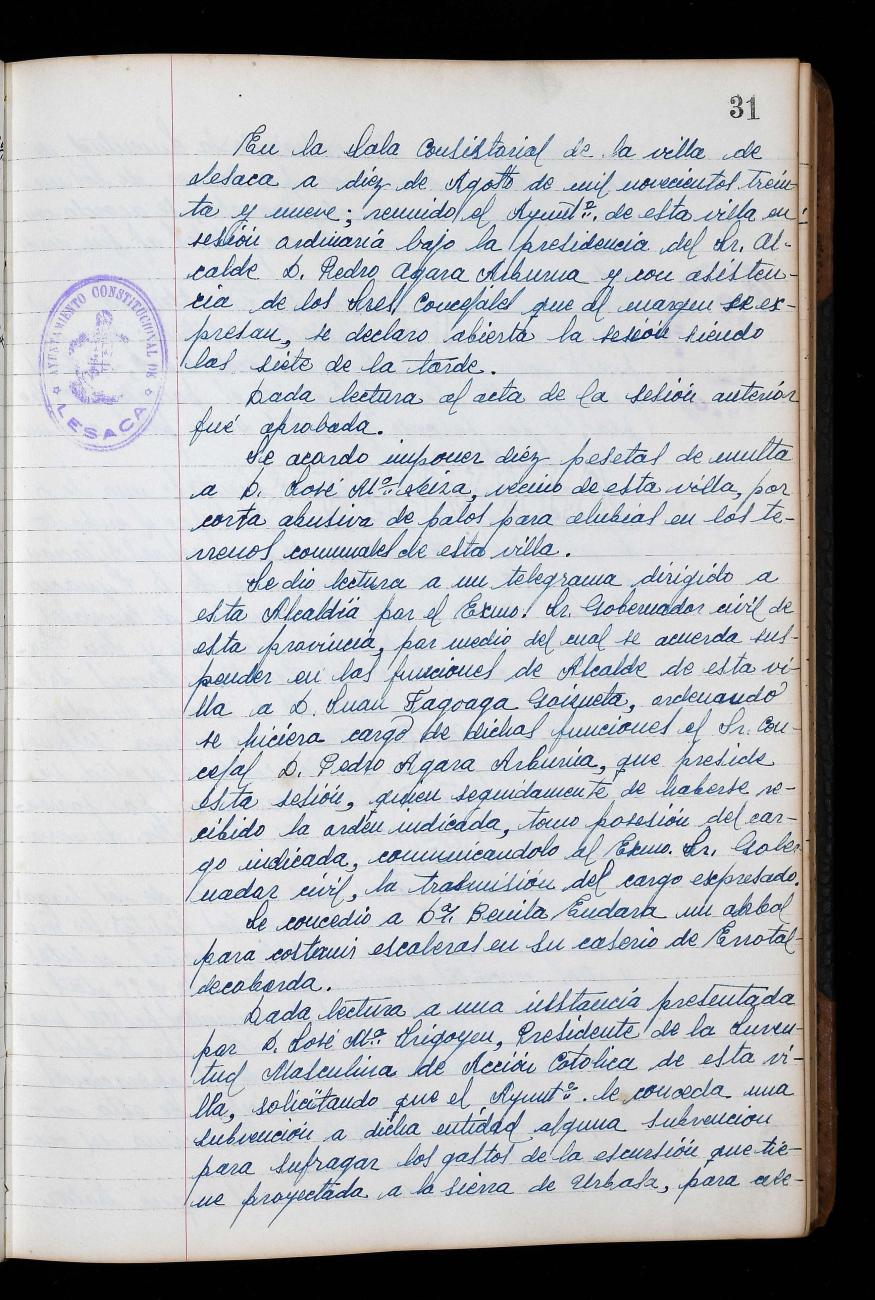 31
En la Sala Consistorial de la villa de
Lesaca a diéz de Agosto de mil novecientos trein-
ta y nueve; reunido el Ayuntº. de esta villa en
sesión ordinaria bajo la presidencia del Sr. Al-
calde D. Pedro Agara Arburua y con asisten-
cia de los Sres Concejales que al margen se ex-
presan, se declaro abierta la sesión siendo
las siete de la tarde.
Dada lectura al acta de la sesión anterior
fué aprobada.
Se acordo imponer diéz pesetas de multa
a D. José Mª. , vecino de esta villa, por
corta abusiva de palos para alubias en los te-
rrenos comunales de esta villa.
Se dio lectura a un telegrama dirigido a
esta Alcaldia por el Exmo. Sr. Gobernador civil de
esta provincia, por medio del cual se acuerda sus-
pender en las funciones de Alcalde de esta vi-
lla a D. Juan Fagoaga Goizueta, ordenando
se hiciera cargo de dichas funciones el Sr. Con-
cejal D. Pedro Agara Arburúa, que preside
esta sesión, quien seguidamente de haberse re-
cibido la orden indicada, tomo posesión del car-
go indicada, comunicandolo al Exmo. Sr. Gober-
nador civil, la trasmisión del cargo expresado.
Se concedio a Dª. Benita Endara un arbol
para costruir escaleras en su caserio de Errotal-
decoborda.
Dada lectura a una instancia presentada
por D. José Mª. Irigoyen, Presidente de la Juven-
tud Masculina de Acción Catolica de esta vi-
lla, solicitando que el Ayuntº. le conceda una
subvención a dicha entidad alguna subvencion
para sufragar los gastos de la escursión que tie-
ne proyectada a la sierra de Urbasa, para cele-
AYUNTAMIENTO CONSTITUCIONAL DE
LESACA